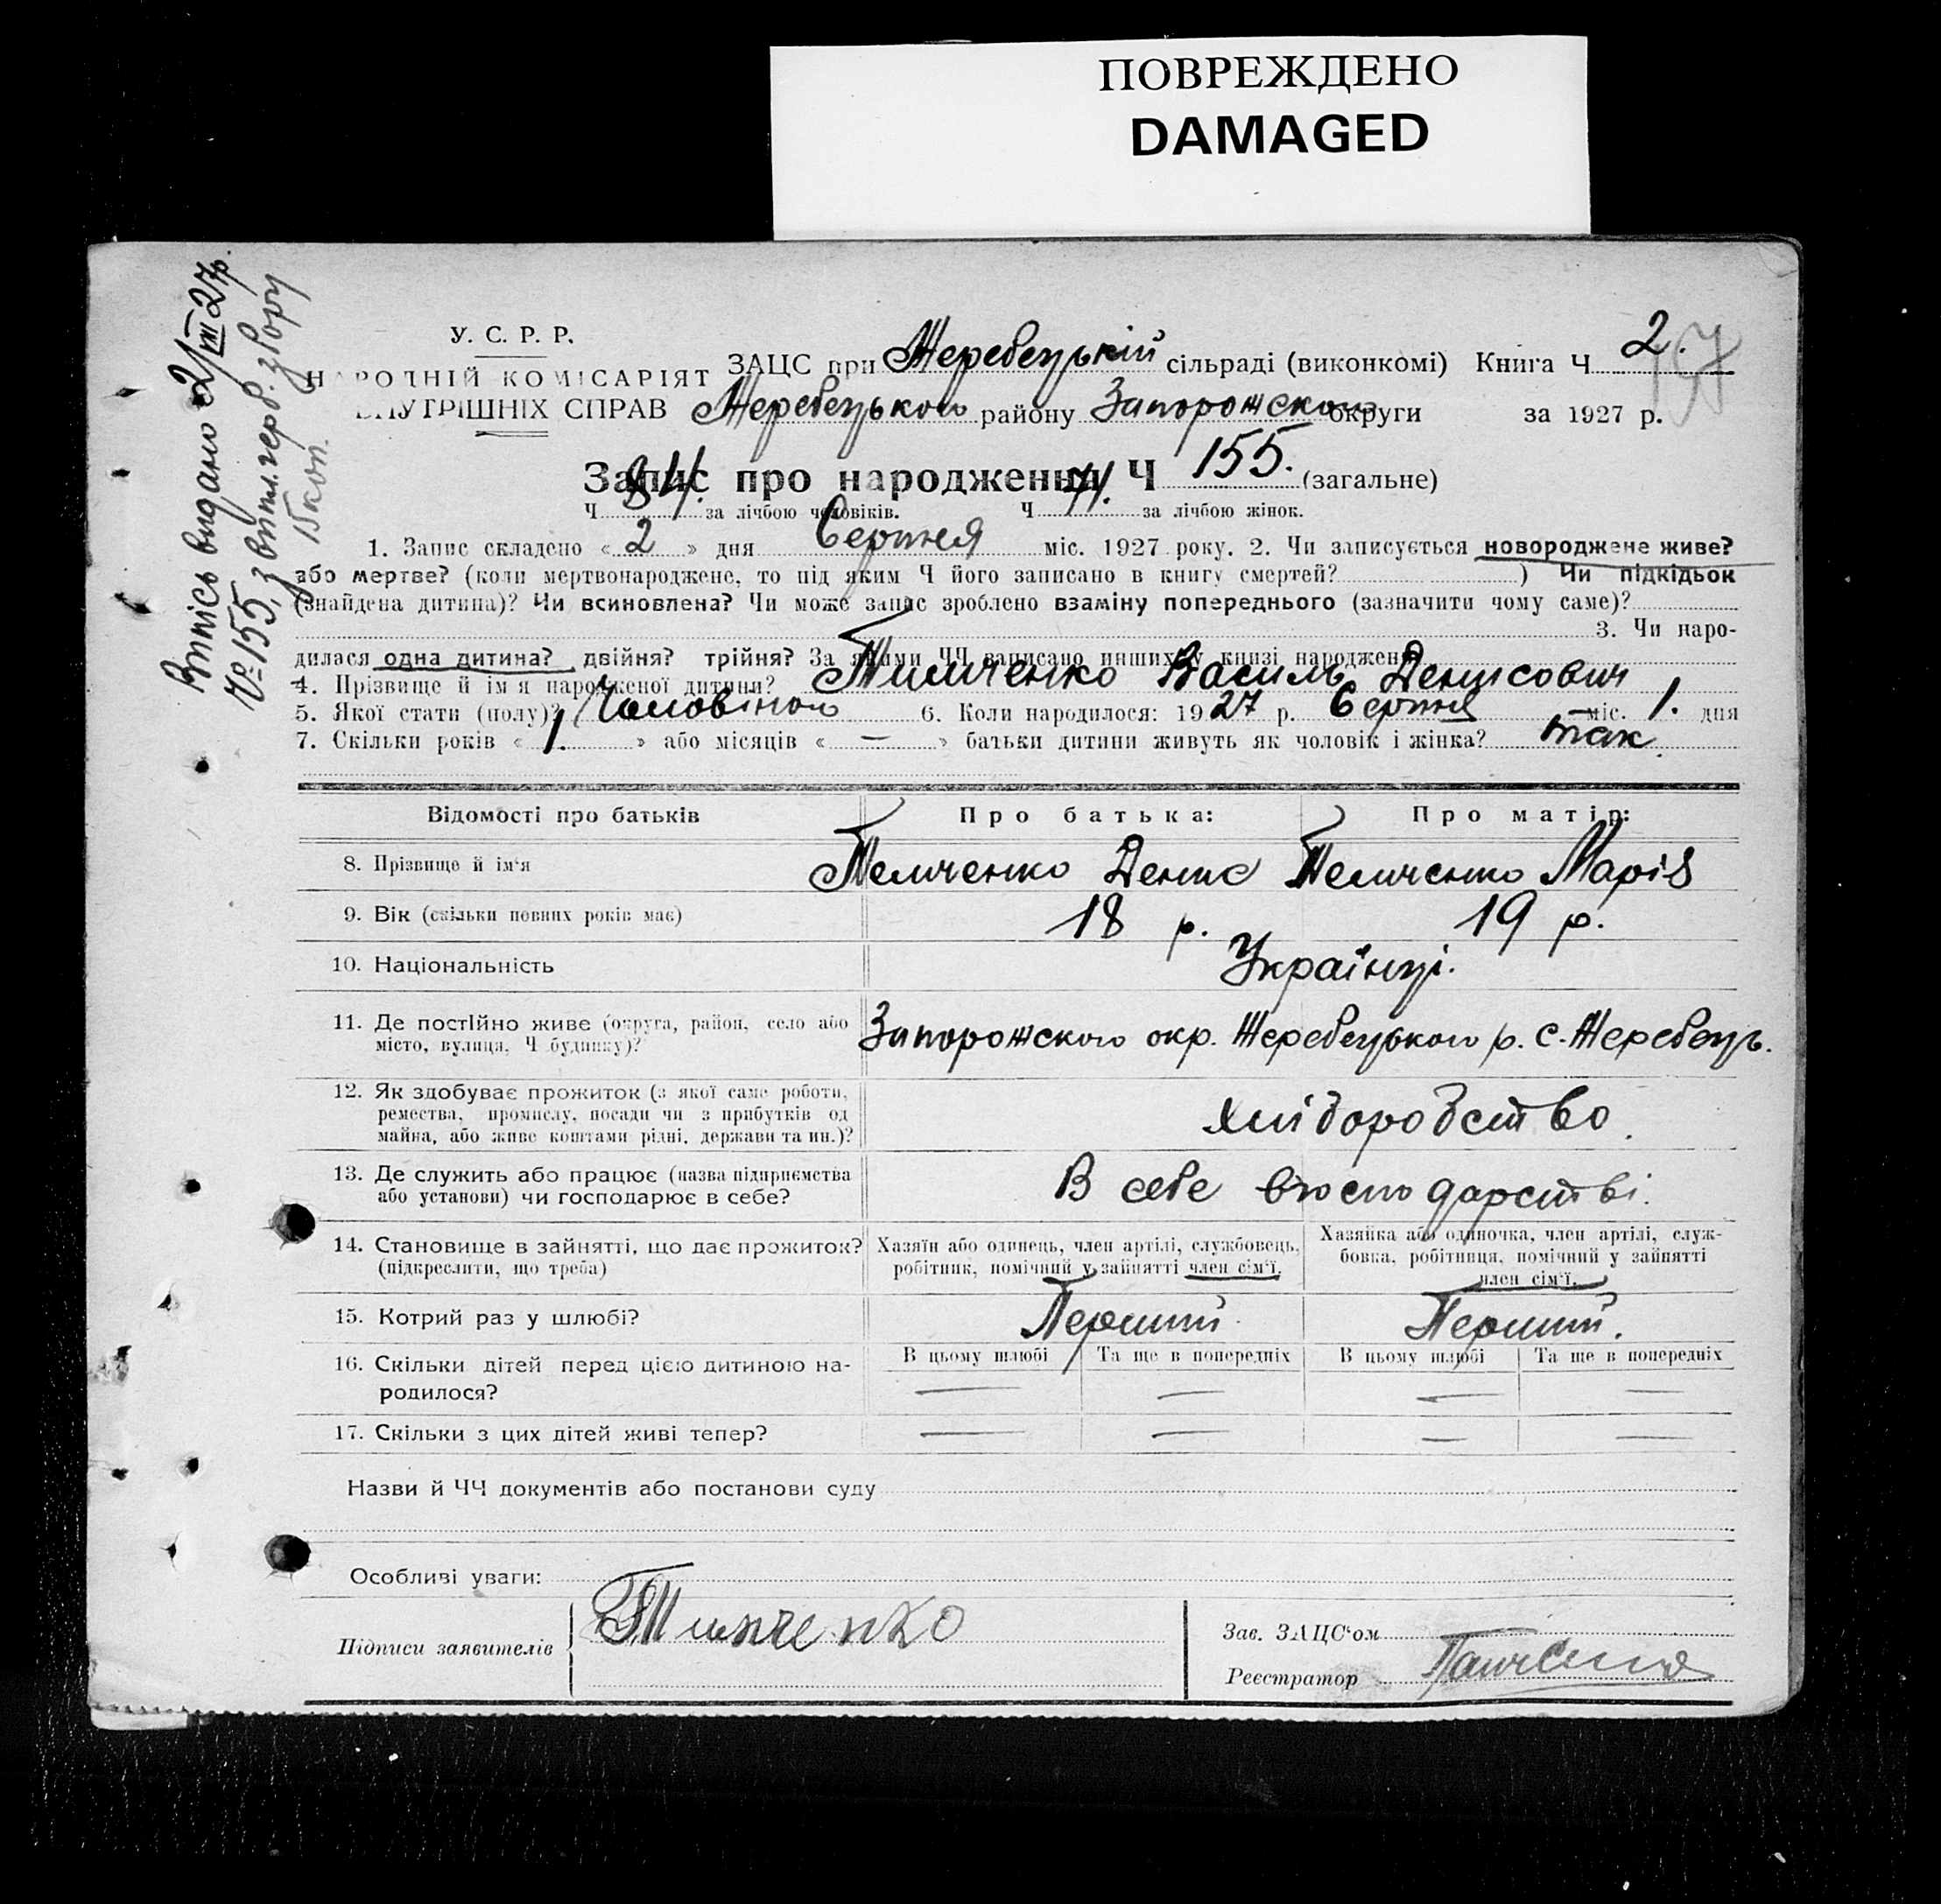 ПОВРЕЖДЕНО
DAMAGED
Випись видано 2/VIII 27р.
№ 155, з випл. герб. збору
15 коп.
У. С. Р. Р.
НАРОДНІЙ КОМІСАРІЯТ
ВНУТРІШНІХ СПРАВ
ЗАЦС при Жеребецькій сільраді (виконкомі) Книга Ч 2.
197
Жеребецького району Запорожского округи за 1927 р.
Запис про народження Ч 155. (загальне)
Ч 84. за лічбою чоловіків. Ч 71. за лічбою жінок.
1. Запис складено « 2 » дня Серпня міс. 1927 року. 2. Чи записується новороджене живе?
або мертве? (коли мертвонароджене, то під яким Ч його записано в книгу смертей? ) Чи підкідьок
(знайдена дитина)? Чи всиновлена? Чи може запис зроблено взаміну попереднього (зазначити чому саме)?
3. Чи наро-
дилася одна дитина? двійня? трійня? За якими ЧЧ записано инших у книзі народжень
4. Прізвище й ім'я народженої дитини? Тимченко Василь Денисович
5. Якої стати (полу)? Чоловічого 6. Коли народилося: 1927 р. Серпня міс. 1. дня
7. Скільки років « 1. » або місяців « — » батьки дитини живуть як чоловік і жінка? так.
Відомості про батьків Про батька: Про матір:
8. Прізвище й ім'я Темченко Денис Темченко Марія
9. Вік (скільки повних років має) 18 р. 19 р.
10. Національність Українці.
11. Де постійно живе (округа, район, село або
місто, вулиця, Ч будинку)? Запорожского окр. Жеребецького р. с. Жеребець.
12. Як здобуває прожиток (з якої саме роботи,
ремества, промислу, посади чи з прибутків од
майна, або живе коштами рідні, держави та ин.)? хліборобство.
13. Де служить або працює (назва підприємства
або установи) чи господарює в себе? В себе в господарстві.
14. Становище в зайнятті, що дає прожиток?
(підкреслити, що треба)
Хазяїн або одинець, член артілі, службовець,
робітник, помічний у зайнятті член сім'ї.
Хазяйка або одиночка, член артілі, служ-
бовка, робітниця, помічний у зайнятті
член сім'ї.
15. Котрий раз у шлюбі? Перший. Перший.
16. Скільки дітей перед цією дитиною на-
родилося?
В цьому шлюбі Та ще в попередніх В цьому шлюбі Та ще в попередніх
— — — —
17. Скільки з цих дітей живі тепер? — — — —
Назви й ЧЧ документів або постанови суду
Особливі уваги:
Підписи заявителів Тимченко
Зав. ЗАЦС'ом
Реєстратор